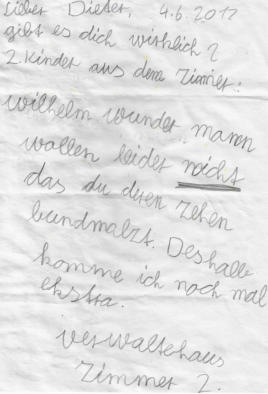 Lieber Dieter, 4.6.2012
gibt es dich wirklich?
2. Kinder aus dem Zimmer:
wilhelm wunder, maren
wollen leider nicht
das du deren zehen
bundmalzt. Deshalb
komme ich noch mal
ekstra.
verwaltehaus
Zimmer 2.